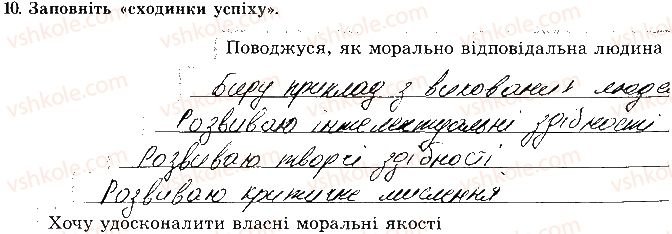 10. Заповніть «сходинки успіху».
Поводжуся, як морально відповідальна людина
Беру приклад з вихованих людей
Розвиваю інтелектуальні здібності
Розвиваю творчі здібності
Розвиваю критичне мислення
Хочу удосконалити власні моральні якості